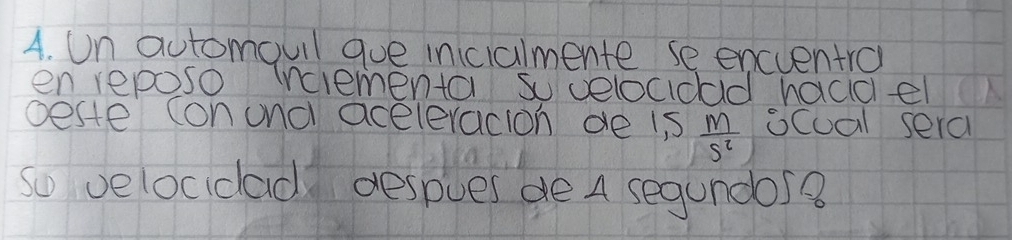 4. Un automovil que inicialmente se encuentra
en reposo incrementa su velocidad hacia el
oeste con una aceleración de 1,5 m/s² ¿cual sera
su velocidad despues de 4 segundos?